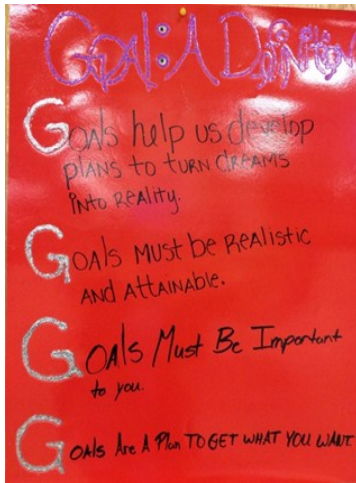 GOAL: A Definition
Goals help us develop
plans to turn dreams
into Reality.
Goals Must be Realistic
AND Attainable.
Goals Must Be Important
to you.
Goals Are A Plan TO GET WHAT YOU WANT.